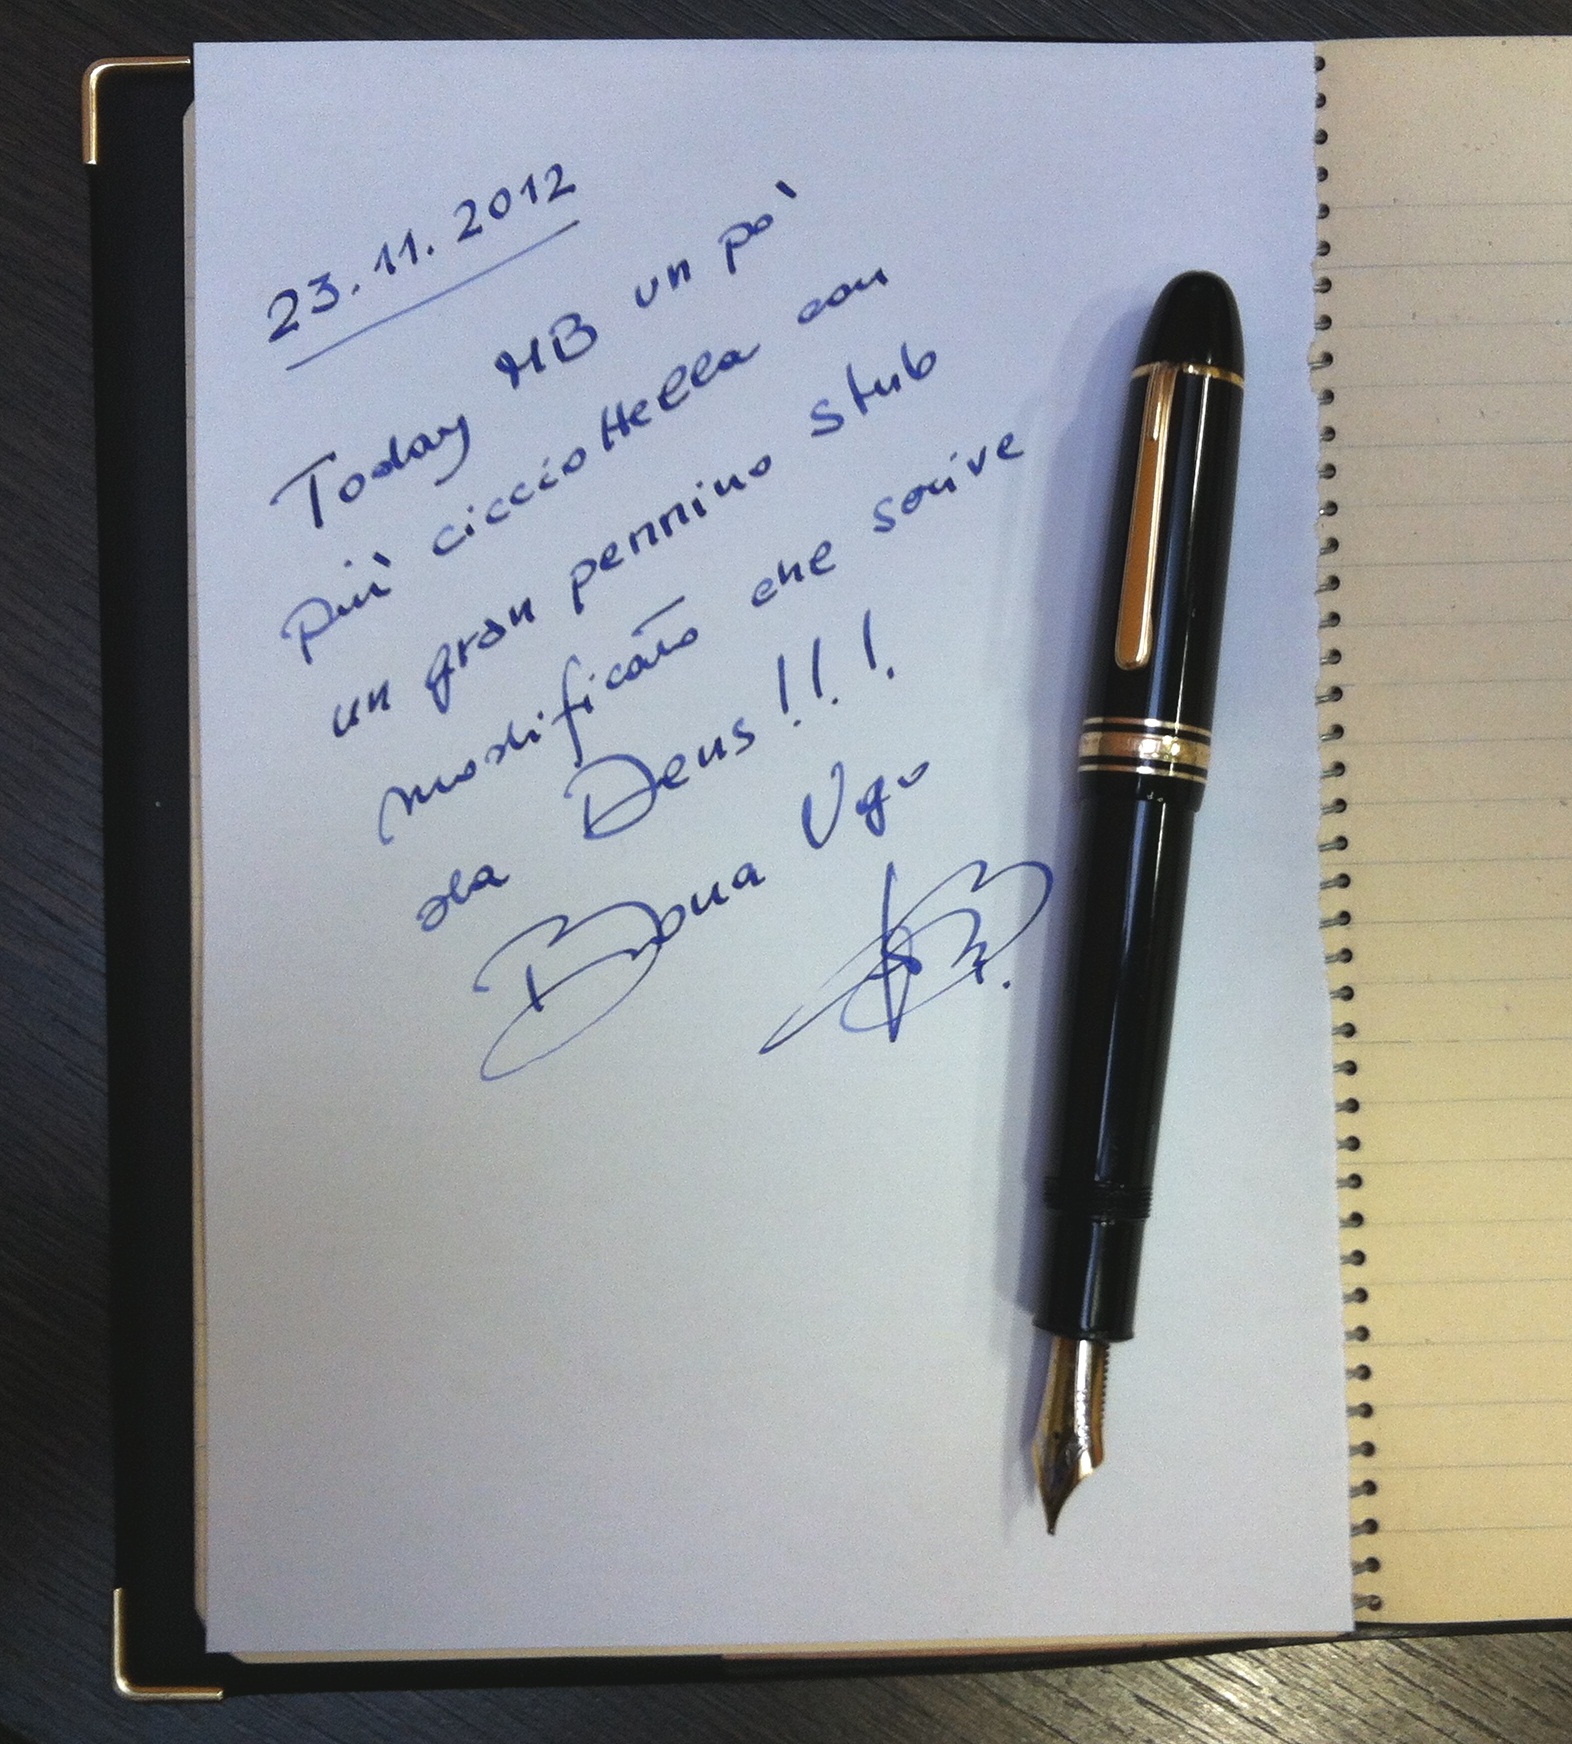 23.11.2012
Today MB un pò
più cicciottella con
un gran pennino stub
modificato che scrive
da Deus!!!
Buona Ugo